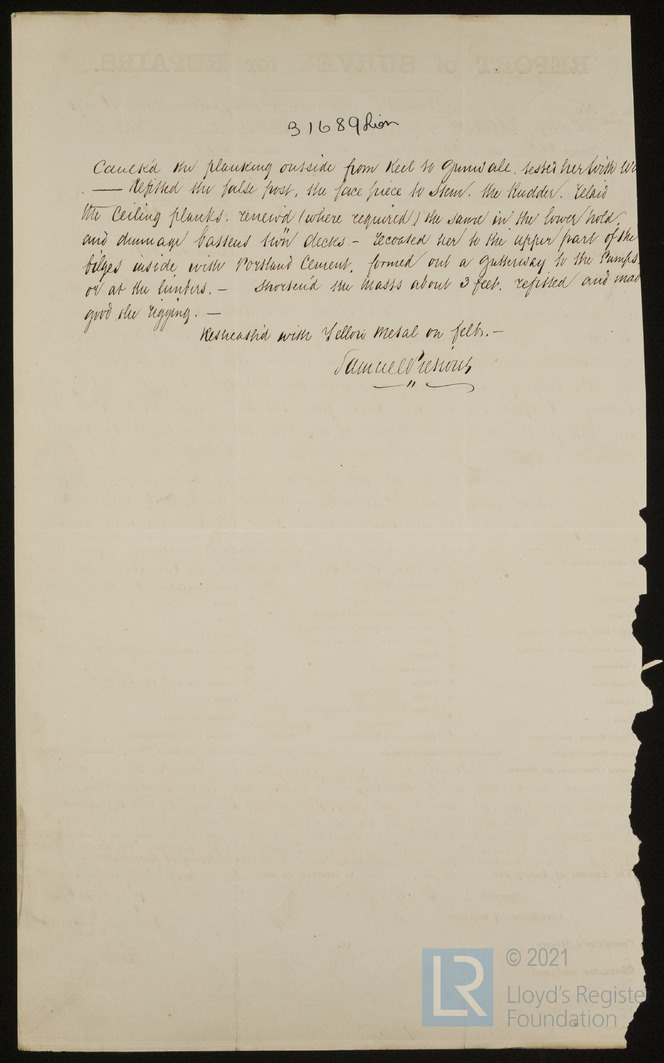 31689 Lion
Caulk'd the planking outside from Keel to Gunwale. tested her with W
— Refitted the false post, the face piece to Stem. the Rudder. Relaid
the Ceiling planks. renew'd (where required) the same in the lower hold,
and dunnage battens tw'n decks – Recoated her to the upper part of the
bilges inside with Portland Cement, formed out a Gutterway to the Pumps
or at the limbers. — Shorten'd the Masts about 3 feet. refitted and mad
good the rigging. —
Resheath'd with Yellow Metal on felt. —
Samuel
REPORT of SURVEY for REPAIRS.
LR
© 2021
Lloyd's Register
Foundation